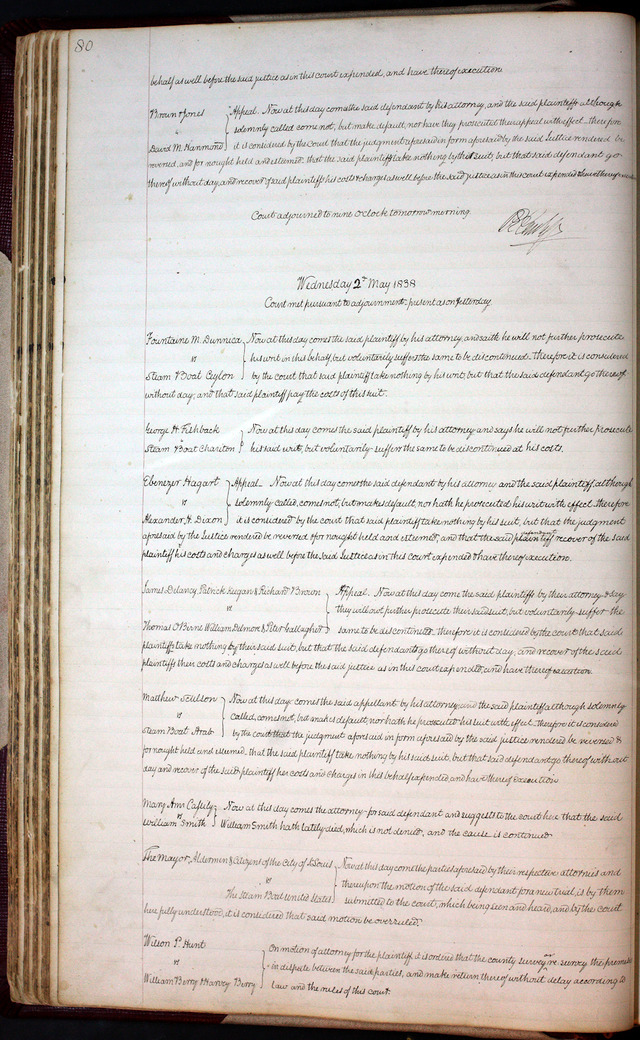 80
behalf as well before the said justice as in this court expended, and have thereof execution
Brown & Jones
vs
David M. Hammond
Appeal. Now at this day comes the said defendant by his attorney, and the said plaintiffs although
solemnly called come not, but make default, nor have they prosecuted their appeal with effect. therefore
it is considered by the Court that the judgment aforesaid in form aforesaid by the said Justice rendered be
reversed, and for nought held and esteemed. that the said plaintiffs take nothing by their suit, but that said defendant go
thereof without day, and recover of said plaintiffs his costs & charges as well before the said justice as in this court expended
Court adjourned to nine O'clock tomorrow morning.
Wednesday 2d May 1838
Court met pursuant to adjournment. present as on yesterday
Fountaine M. Dunnica
vs
Steam Boat Ceylon
Now at this day comes the said plaintiff by his attorney, and saith he will not further prosecute
his writ in this behalf, but voluntarily suffers the same to be discontinued. Therefore it is considered
by the court that said plaintiff take nothing by his writ, but that the said defendant go thereof
without day, and that said plaintiff pay the costs of this suit.
George H. Fishback
vs
Steam Boat Chariton
Now at this day comes the said plaintiff by his attorney and says he will not further prosecute
his said writ, but voluntarily suffer the same to be discontinued at his costs.
Ebenezer Hagart
vs
Alexander H. Dixon
Appeal. Now at this day comes the said defendant by his attorney and the said plaintiff, although
solemnly called, comes not, but makes default, nor hath he prosecuted his writ with effect. therefore
it is considered by the court that said plaintiff take nothing by his suit, but that the judgment
aforesaid by the Justice rendered be reversed & for nought held and esteemed, and that the said defendant recover of the said
plaintiff his costs and charges as well before the said Justice as in this court expended & have thereof execution.
James Delancy Patrick Keegan & Richard Brown
vs
Thomas O'Birne William Delmore & Peter Gallagher
Appeal. Now at this day come the said plaintiffs by their attorney & say
they will not further prosecute their said suit, but voluntarily suffer the
same to be discontinued. therefore it is considered by the court that said
plaintiffs take nothing by their said suit, but that the said defendants go thereof without day, and recover of the said
plaintiffs their costs and charges as well before the said justice as in this court expended, and have thereof execution.
Matthew
vs
Steam Boat Arab
Now at this day comes the said appellant by his attorney, and the said plaintiff although solemnly
called, comes not, but makes default, nor hath he prosecuted his suit with effect. therefore it is considered
by the court that the judgment aforesaid in form aforesaid by the said justice rendered be reversed &
for nought held and esteemed. that the said plaintiff take nothing by his said suit, but that said defendant go thereof without
day and recover of the said plaintiff her costs and charges in this behalf expended, and have thereof execution
Mary Ann
vs
William Smith
Now at this day comes the attorney for said defendant and suggests to the court here that the said
William Smith hath lately died, which is not denied, and the cause is continued
The Mayor, Aldermen & Citizens of the City of St Louis
vs
The Steam Boat United States
Now at this day come the parties aforesaid by their respective attornies and
thereupon the motion of the said defendant for a new trial, is by them
submitted to the court, which being seen and heard, and by the court
here fully understood, it is considered that said motion be overruled.
Wilson P. Hunt
vs
William Berry & Harvey Berry
On motion of attorney for the plaintiff it is ordered that the county surveyor re survey the premises
in dispute between the said parties, and make return thereof without delay according to
law and the rules of this court.